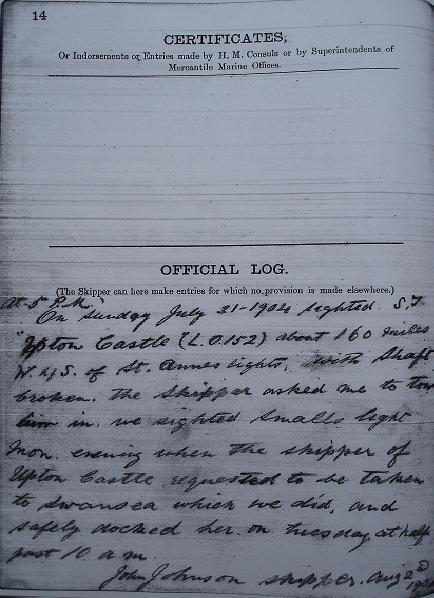 14
CERTIFICATES,
Or Indorsements or Entries made by H. M. Consuls or by Superintendents of
Mercantile Marine Offices.
OFFICIAL LOG.
(The Skipper can here make entries for which no provision is made elsewhere.)
At 5 P.M.
On Sunday July 31-1904 sighted S.T.
"Upton Castle" (L.O.152) about 160 miles
W by S. of St. Annes lights, with Shaft
broken. the Skipper asked me to tow
him in, we sighted Smalls light
Mon. evening when the skipper of
Upton Castle requested to be taken
to Swansea which we did, and
safely docked her on tuesday at half
past 10. a m.
John Johnson skipper. Aug 2nd